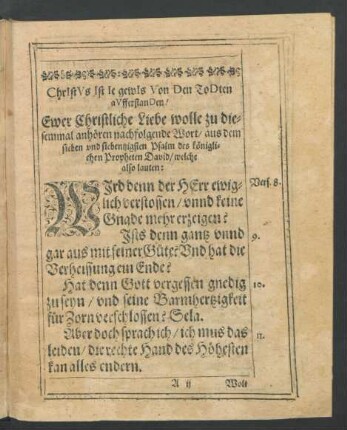 ChrIstVs Ist Ie gewIs Von Den ToDten
aVfferstanDen/
Ewer Christliche Liebe wolle zu die-
semmal anhören nachfolgende Wort/ aus dem
sieben und siebenzigsten Psalm des königli-
chen Propheten David/ welche
also lauten:
WIrd denn der HErr ewig- Vers. 8.
lich verstossen/ vnnd keine
Gnade mehr erzeigen?
Ists denn gantz vnnd 9.
gar aus mit seiner Güte? Vnd hat die
Verheissung ein Ende?
Hat denn Gott vergessen gnedig 10.
zu seyn/ vnd seine Barmhertzigkeit
für Zorn verschlossen? Sela.
Aber doch sprach ich/ ich mus das 11.
leiden/ die rechte Hand des Höhesten
kan alles endern.
A ij Wolt